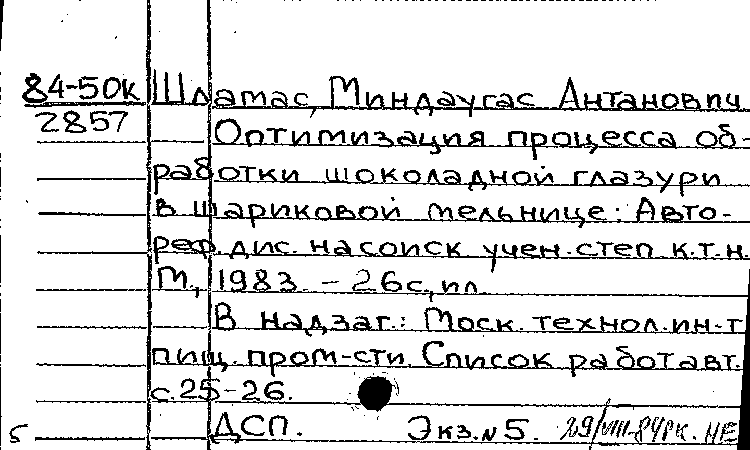 84-50к Шламас, Миндаугас Антанович
2857 Оптимизация процесса об-
работки шоколадной глазури
в шариковой мельнице: Авто-
реф. дис. на соиск учен. степ к.т.н.
М., 1983. - 26с., ил.
В надзаг.: Моск. технол. ин-т
пищ. пром-сти. Список работ авт.
с. 25-26.
5 ДСП. Экз. № 5. 29/VIII-84